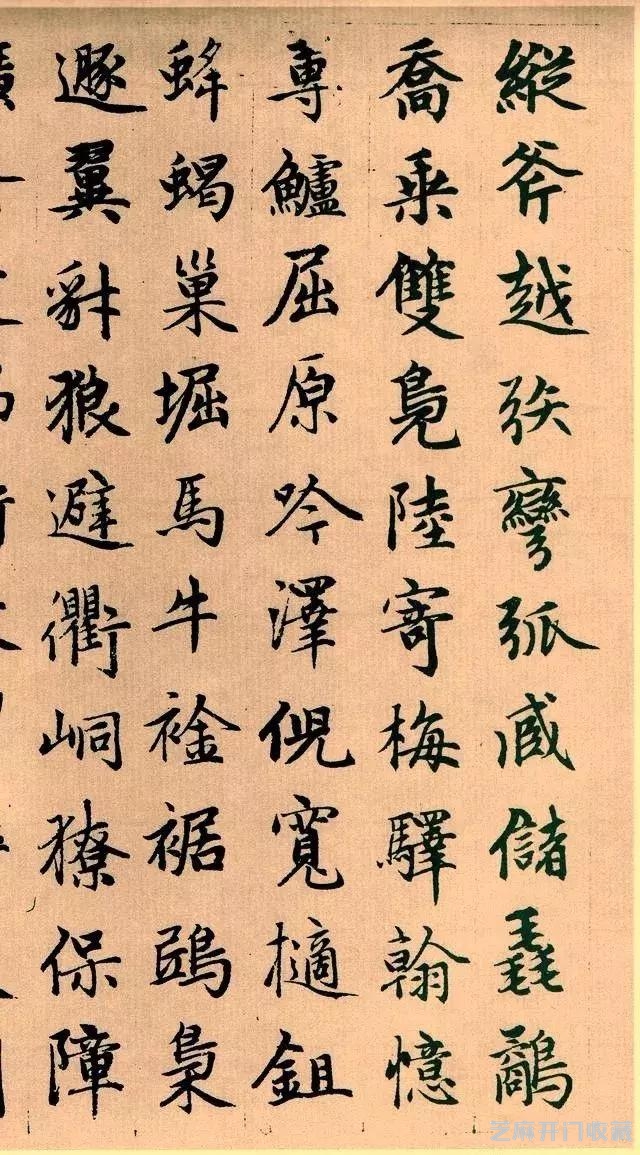 縱斧越彎弧儲毳
喬乘雙鳧陸寄梅驛翰憶
專鱸屈原吟澤倪寬樀鉏
蜂蝎巢堀馬牛裾鴟梟
遯翼豺狼避衢峒獠保障
芝麻开门收藏